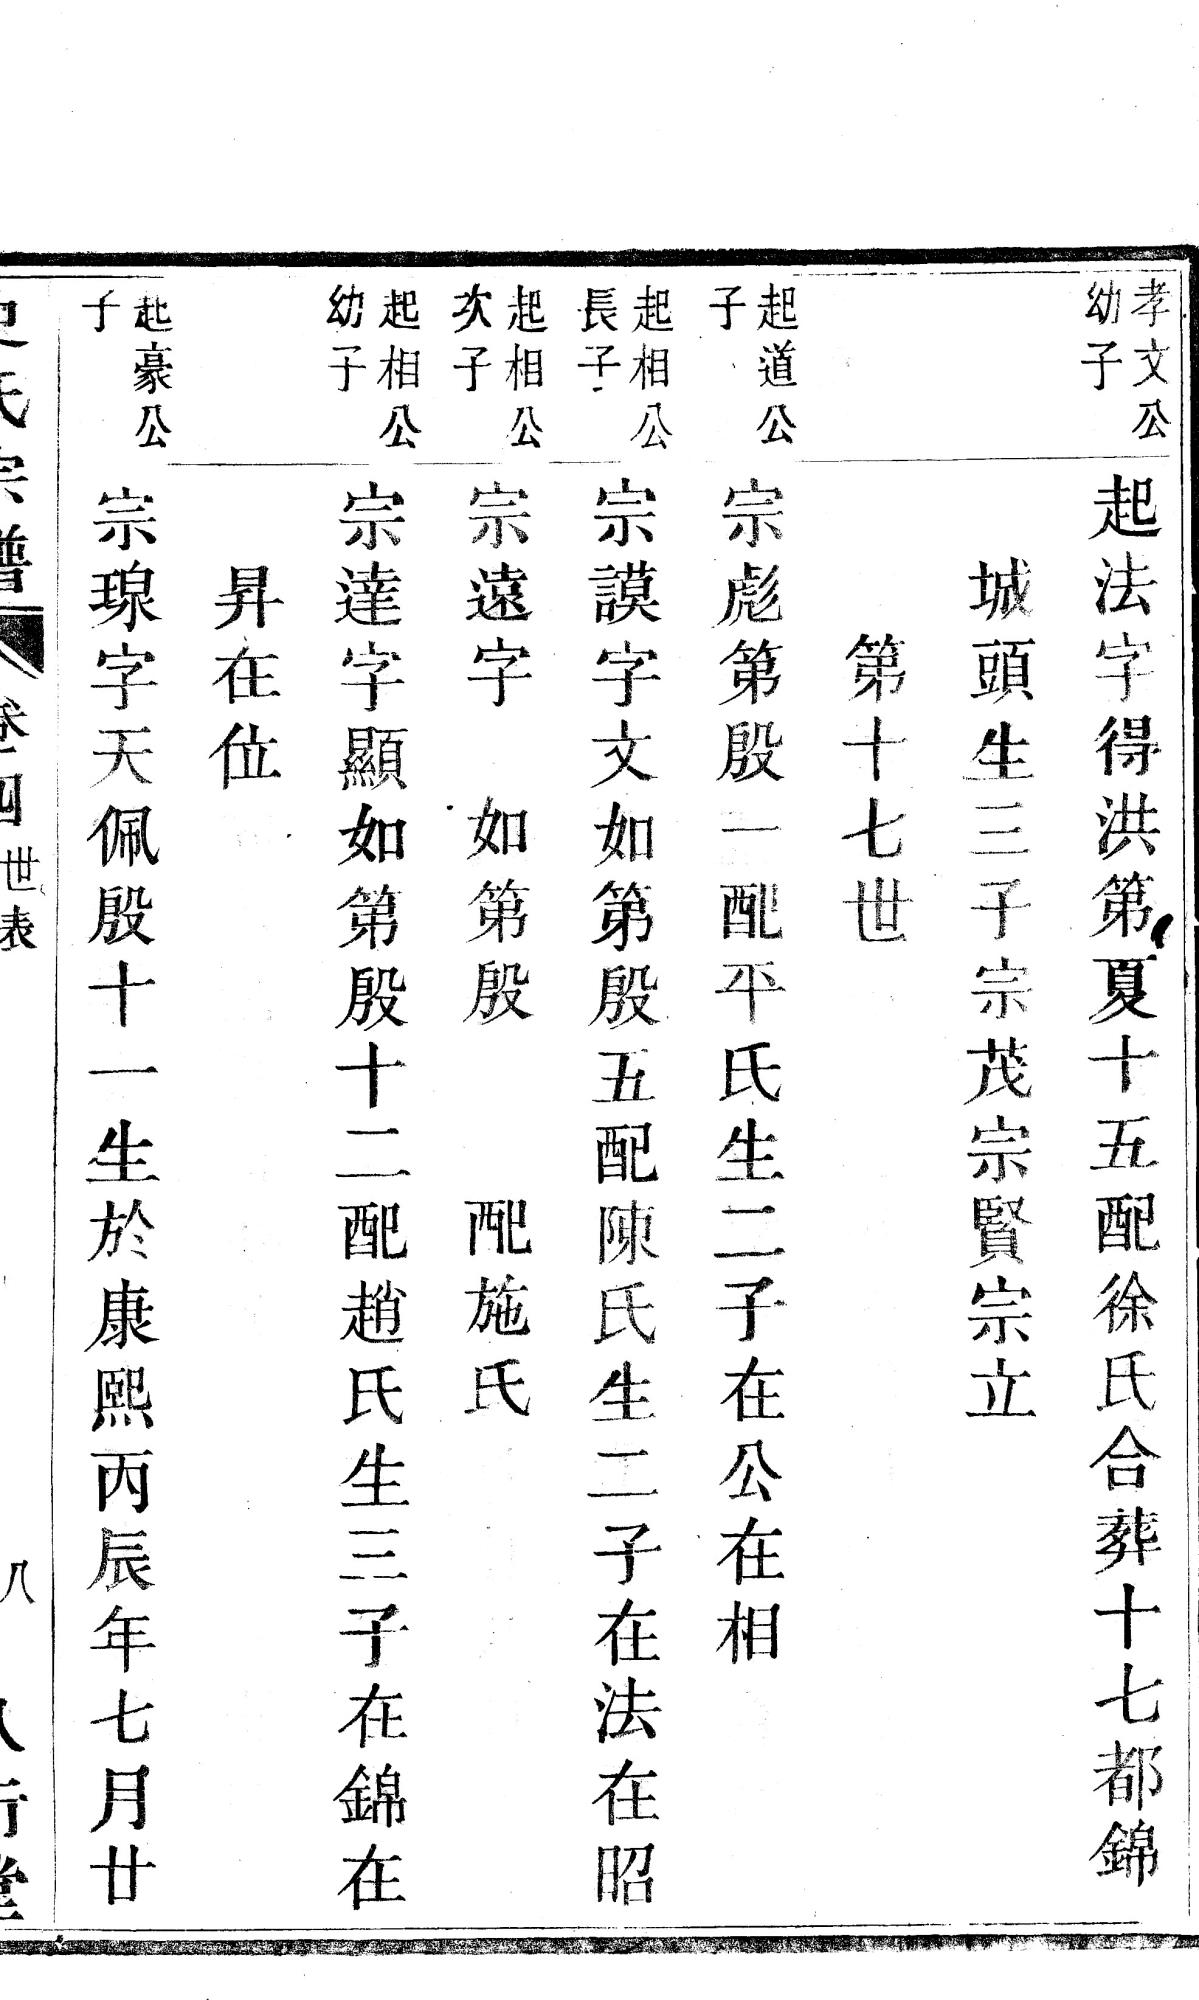 孝文公
幼子
起法字得洪第夏十五配徐氏合葬十七都錦
城頭生三子宗茂宗賢宗立
第十七世
起道公
子
宗彪第殷一配平氏生二子在公在相
起相公
長子
宗謨字文如第殷五配陳氏生二子在法在昭
起相公
次子
宗遠字　如第殷　　配施氏
起相公
幼子
宗達字顯如第殷十二配趙氏生三子在錦在
昇在位
起豪公
子
宗琅字天佩殷十一生於康熙丙辰年七月廿
氏宗譜
卷四世表
八
行堂